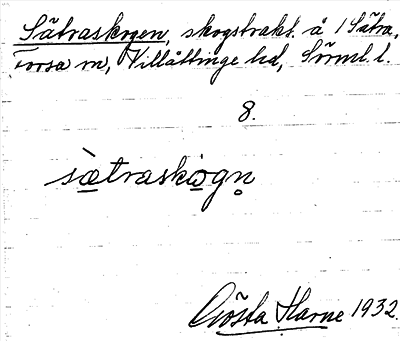 Sätraskogen, skogstrakt å 1 Sätra,
Torsa sn, Villåttinge hd, Sörml. l.
8.
sætraskogn̥
Gösta Harne 1932.